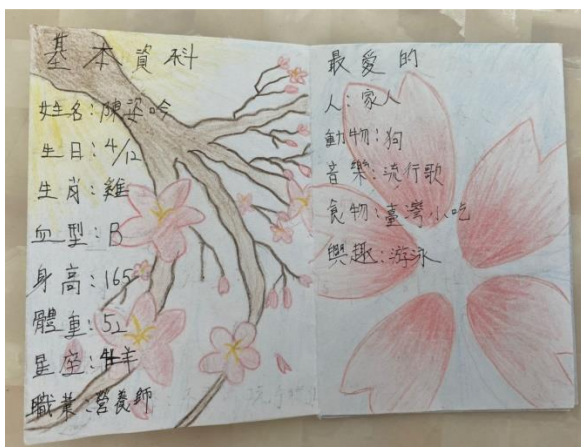 基本資料
姓名:陳姿吟
生日:4/12
生肖:雞
血型:B
身高:165
體重:52
星座:牡羊
職業:營養師
最愛的
人:家人
動物:狗
音樂:流行歌
食物:臺灣小吃
興趣:游泳